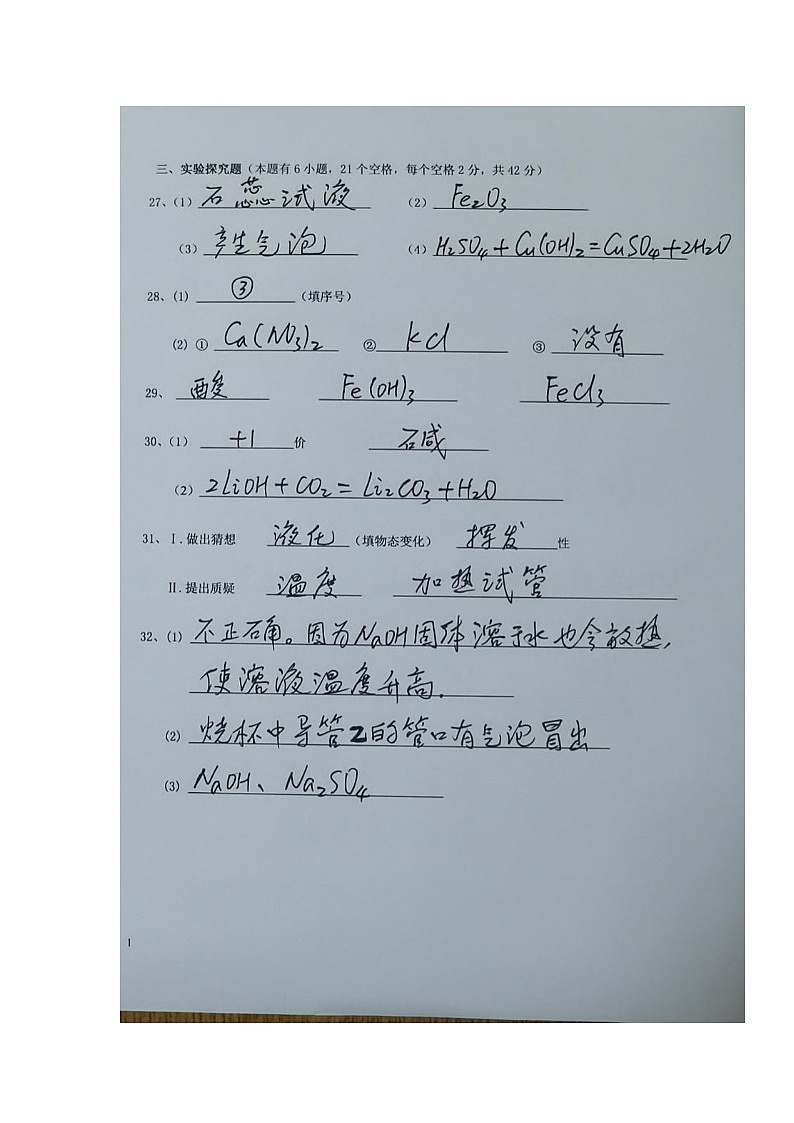 三、实验探究题（本题有6小题，21个空格，每个空格2分，共42分）
27、（1） 石蕊试液 （2） Fe₂O₃
（3） 产生气泡 （4） H₂SO₄+Cu(OH)₂=CuSO₄+2H₂O
28、(1) ③ （填序号）
(2) ① Ca(NO₃)₂ ② kCl ③ 没有
29、 酸 Fe(OH)₃ FeCl₃
30、（1） +1 价 碱
（2） 2LiOH+CO₂=Li₂CO₃+H₂O
31、Ⅰ.做出猜想 液化 （填物态变化） 挥发 性
Ⅱ.提出质疑 温度 加热试管
32、（1） 不正确。因为NaOH固体溶于水也会放热，
使溶液温度升高.
（2） 烧杯中导管2的管口有气泡冒出
（3） NaOH、Na₂SO₄
1